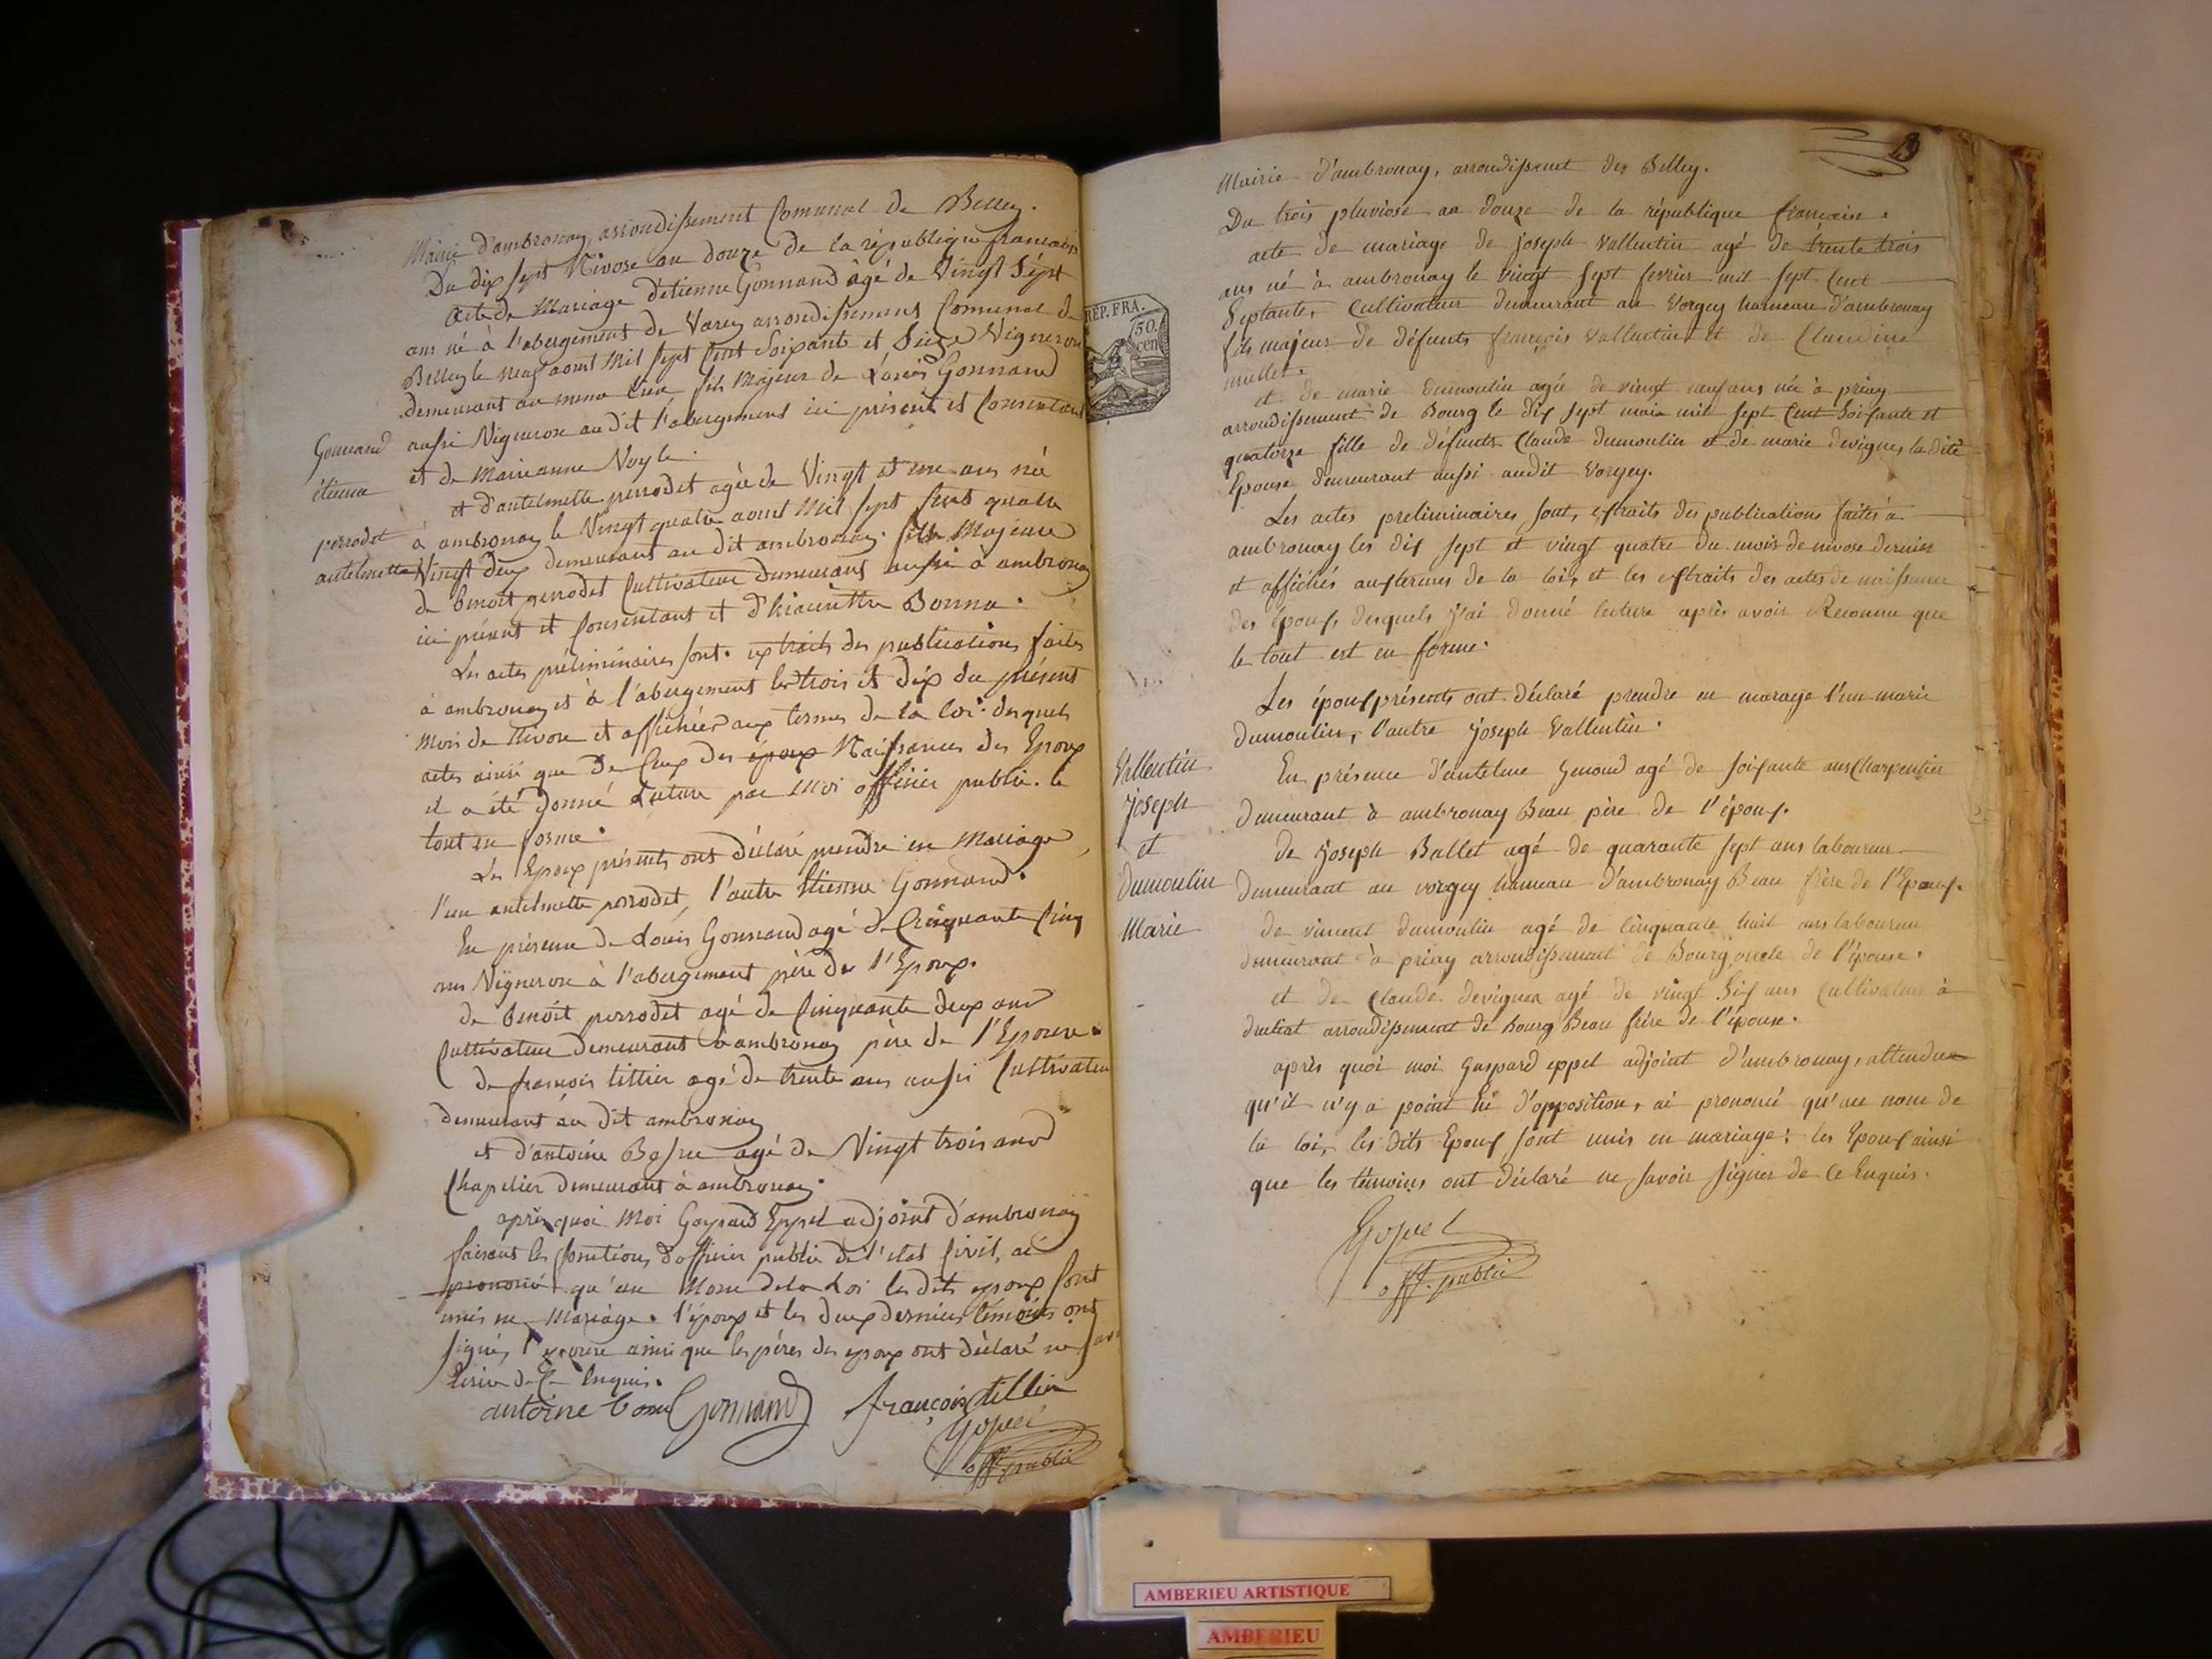 Mairie d'ambronay, arrondissement Comunal de Belley.
Du dix sept Nivose an douze de la république francaise
Acte de Mariage d'etienne Gonnand âgé de Vingt Sept
ans né à l'abergement de Varey arrondissement Comunal de
Belley le neuf aoust Mil sept Cent Soixante et Seize Vigneron
demeurant au meme lieu, fils Majeur de Louis Gonnand
aussi Vigneron au dit l'abergement ici présent et Consentant
et de Marianne Noyle.
et d'antelmette perrodet agée de Vingt et une ans née
à ambronay le Vingt quatre aoust Mil sept Cent quatre
Vingt deux demeurant au dit ambronay. fille Majeure
de benoit perrodet Cultivateur demeurant aussi à ambronay
ici présent et Consentant et d'hiacinthe Bonna.
Les actes préliminaires sont. extraits des publications faites
à ambronay et à l'abergement les trois et dix du présent
mois de Nivose et affichées aux termes de la loi. desquels
actes ainsi que De Ceux des époux Naissances des Epoux
il a été donné Lecture par Moi officier public. le
tout en forme.
Les Epoux présents ont déclaré prendre en Mariage
l'un antelmette perrodet, l'autre Etienne Gonnand.
En présence de Louis Gonnand agé de Cinquante Cinq
ans Vigneron à l'abergement père de l'Epoux.
de benoit perrodet agé de Cinquante deux ans
Cultivateur demeurant à ambronay père de l'Epouse.
de françois tittier agé de trente ans aussi Cultivateur
demeurant au dit ambronay
et d'antoine agé de Vingt trois ans
Chapelier demeurant à ambronay.
après quoi Moi Gaspard Eppel adjoint d'ambronay
faisant les fonctions d'officier public de l'etat Civil, ai
prononcé qu'au Nom de la Loi les dits epoux sont
unis en Mariage. l'époux et les deux derniers témoins ont
signé, l'epouse ainsi que les pères des epoux ont déclaré ne
de Ce Enquis.
antoine Gonnand françois tillier
off. public
Gonnand
étienne
perrodet
antelmette
REP. FRA.
50.
cen
Mairie d'ambronay, arrondissement des Belley.
Du trois pluviose an douze de la république francaise.
acte de mariage de joseph vallentin agé de trente trois
ans né à ambronay le vingt sept fevrier mil sept Cent
Septante, Cultivateur demeurant au Vorgey hameau d'ambronay
fils majeur de défunts françois Vallentin et de Claudine
mullet.
et de marie dumoulin agée de vingt neuf ans née à priay
arrondissement de Bourg le dix sept mai mil sept Cent Soixante et
quatorze fille de défunts Claude dumoulin et de marie devignes ladite
Epouse demeurant aussi audit vorgey.
Les actes preliminaires sont, extraits des publications faites à
ambronay les dix sept et vingt quatre du mois de nivose dernier
et affichés aux termes de la loi, et les extraits des actes de naissance
des époux, desquels j'ai donné lecture après avoir Reconnu que
le tout est en forme.
Les époux présents ont déclaré prendre en marage l'un marie
dumoulin, l'autre joseph Vallentin.
En présence d'antelme Genoud agé de soixante ans Charpentier
demeurant à ambronay Beau père de l'époux.
de joseph Ballet agé de quarante sept ans laboureur
demeurant au vorgey hameau d'ambronay Beau frère de l'Epoux.
de vincent dumoulin agé de Cinquante huit ans laboureur
demeurant à priay arrondissement de Bourg, oncle de l'épouse.
et de Claude devignes agé de vingt Six ans Cultivateur à
druliat arrondissement de Bourg Beau frère de l'épouse.
après quoi moi Gaspard eppel adjoint d'ambronay, attendu
qu'il n'y a point eu d'opposition, ai prononcé qu'au nom de
la loi, les dits Epoux sont unis en mariage; les Epoux ainsi
que les témoins ont déclaré ne savoir signer de Ce Enquis.
off. public
Vallentin
joseph
et
dumoulin
Marie
AMBERIEU ARTISTIQUE
AMBERIEU